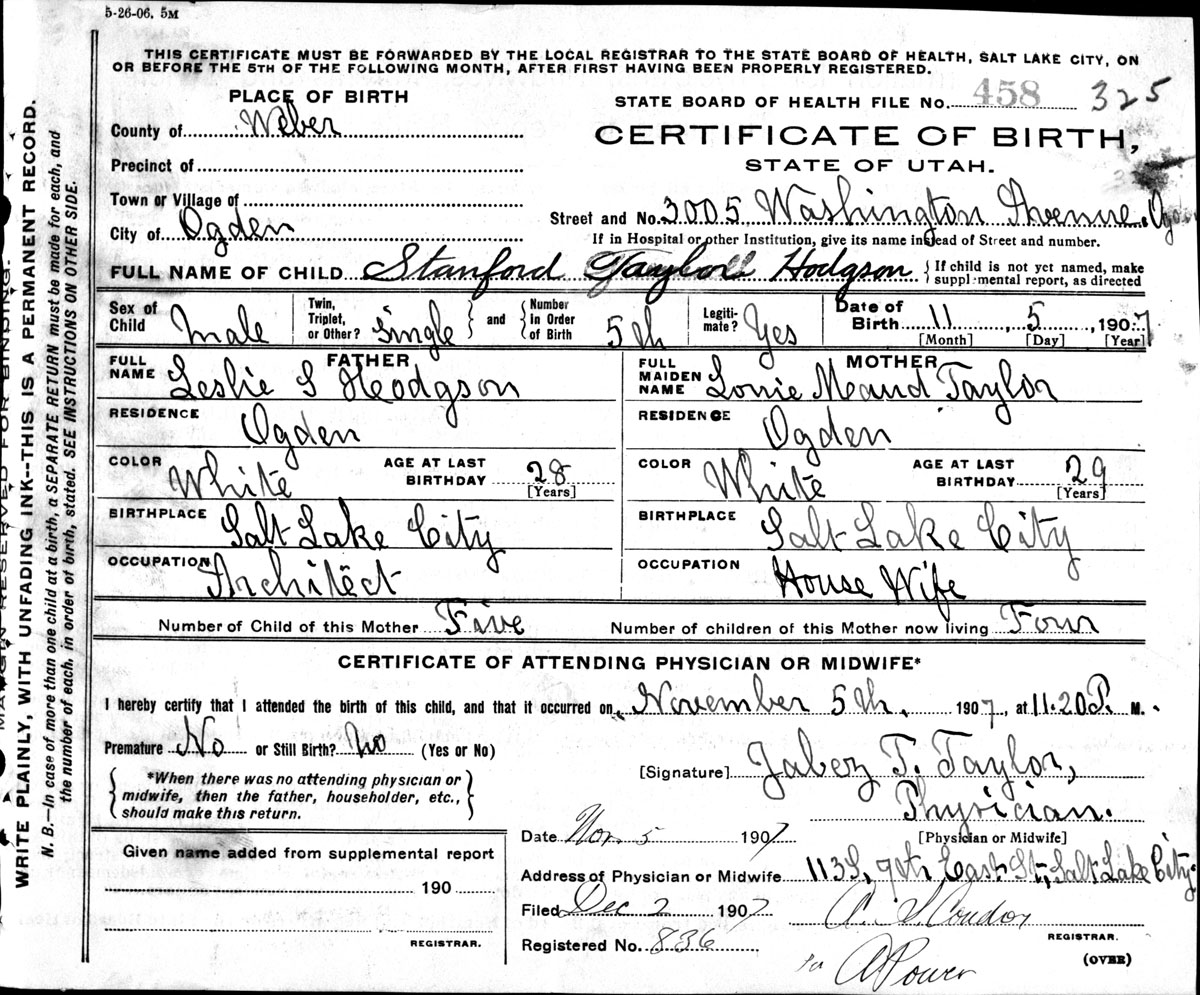 5-26-06. 5M
THIS CERTIFICATE MUST BE FORWARDED BY THE LOCAL REGISTRAR TO THE STATE BOARD OF HEALTH, SALT LAKE CITY, ON
OR BEFORE THE 5TH OF THE FOLLOWING MONTH, AFTER FIRST HAVING BEEN PROPERLY REGISTERED.
PLACE OF BIRTH
STATE BOARD OF HEALTH FILE No. 458 325
County of Weber
CERTIFICATE OF BIRTH,
STATE OF UTAH.
Precinct of
Town or Village of
Street and No. 3005 Washington Avenue. Ogden
City of Ogden
If in Hospital or other Institution, give its name instead of Street and number.
FULL NAME OF CHILD Stanford Hodgson { If child is not yet named, make
supplemental report, as directed
Sex of Child Male
Twin, Triplet, or Other? Single } and { Number In Order of Birth 5th
Legiti-mate? Yes
Date of Birth 11, 5, 1907
[Month] [Day] [Year]
FATHER
FULL NAME Leslie S Hodgson
MOTHER
FULL MAIDEN NAME Lonie Meaud Taylor
RESIDENCE Ogden
RESIDENCE Ogden
COLOR White AGE AT LAST BIRTHDAY 28 [Years]
COLOR White AGE AT LAST BIRTHDAY 29 [Years]
BIRTHPLACE Salt Lake City
BIRTHPLACE Salt Lake City
OCCUPATION Architect
OCCUPATION House Wife
Number of Child of this Mother Five Number of children of this Mother now living Four
CERTIFICATE OF ATTENDING PHYSICIAN OR MIDWIFE*
I hereby certify that I attended the birth of this child, and that it occurred on November 5th, 1907, at 11.20 P. M.
Premature No or Still Birth? No (Yes or No)
{ *When there was no attending physician or
midwife, then the father, householder, etc.,
should make this return. }
[Signature] Jabez T. Taylor,
Physician.
[Physician or Midwife]
Date Nov. 5 1907
Address of Physician or Midwife 113 S, 9th East St, Salt Lake City.
Given name added from supplemental report
190
REGISTRAR.
Filed Dec 2 1907 A. S. Condon
REGISTRAR.
Registered No. 836
A Power
(OVER)
MARGIN RESERVED FOR BINDING.
WRITE PLAINLY, WITH UNFADING INK--THIS IS A PERMANENT RECORD.
N. B.—In case of more than one child at a birth, a SEPARATE RETURN must be made for each, and
the number of each, in order of birth, stated. SEE INSTRUCTIONS ON OTHER SIDE.